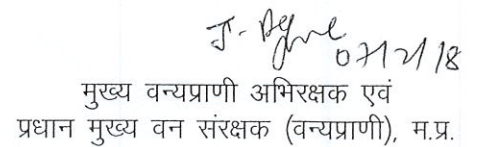 07/2/18
मुख्य वन्यप्राणी अभिरक्षक एवं
प्रधान मुख्य वन संरक्षक (वन्यप्राणी), म.प्र.